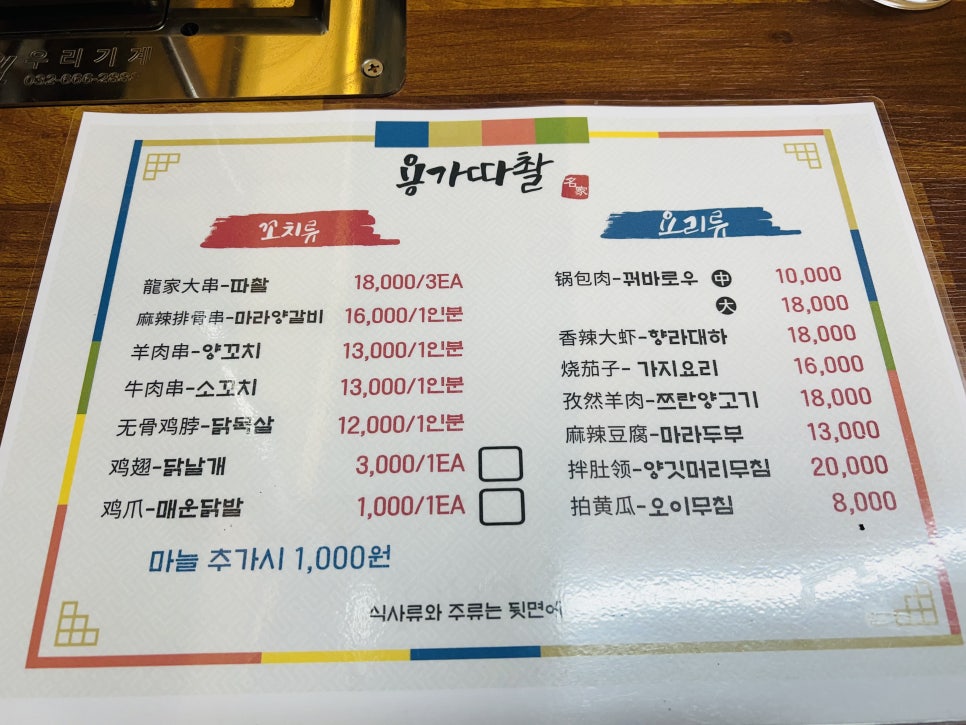 우리기계
032-666-2681
용가따촬
名家
꼬치류
龍家大串-따촬 18,000/3EA
麻辣排骨串-마라양갈비 16,000/1인분
羊肉串-양꼬치 13,000/1인분
牛肉串-소꼬치 13,000/1인분
无骨鸡脖-닭목살 12,000/1인분
鸡翅-닭날개 3,000/1EA
鸡爪-매운닭발 1,000/1EA
마늘 추가시 1,000원
요리류
锅包肉-꿔바로우 中 10,000
大 18,000
香辣大虾-향라대하 18,000
烧茄子- 가지요리 16,000
孜然羊肉-쯔란양고기 18,000
麻辣豆腐-마라두부 13,000
拌肚领-양깃머리무침 20,000
拍黄瓜-오이무침 8,000
식사류와 주류는 뒷면에